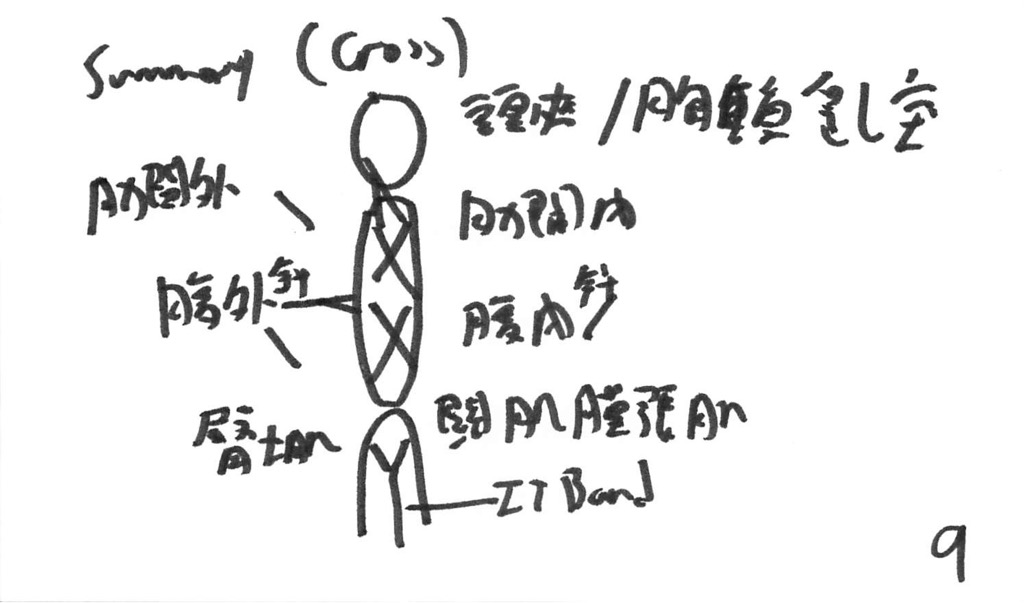 Summary (Cross)
頭夾 / 胸鎖乳突
肋間外
肋間內
腹外斜
腹內斜
臀大肌
闊肌膜張肌
IT Band
9